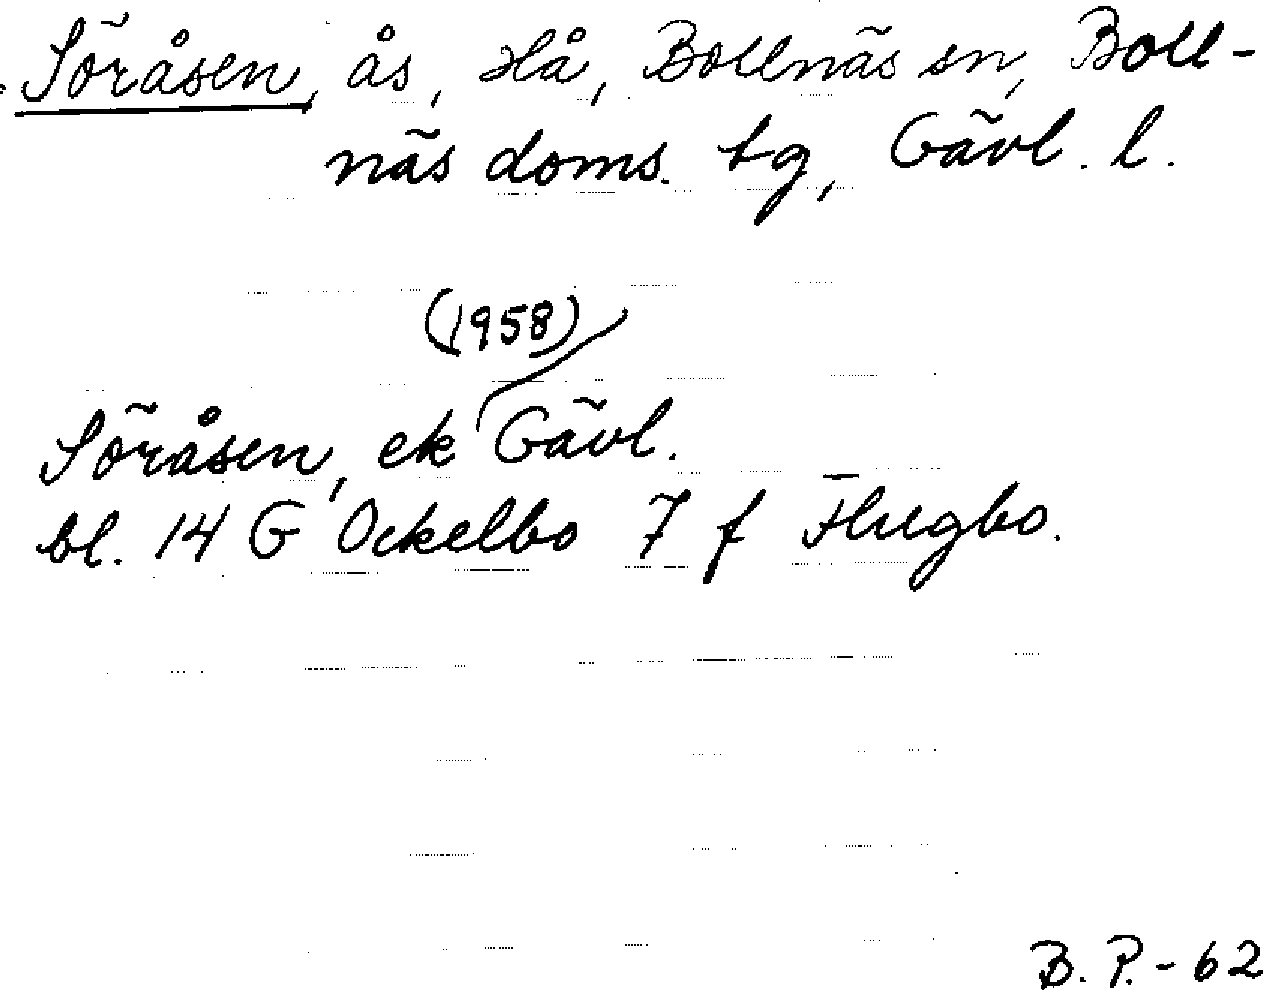 Söråsen, ås, Hå, Bollnäs sn, Boll-
näs doms. tg, Gävl. l.
(1958)
Söråsen, ek Gävl.
bl. 14 G Ockelbo 7 f Flugbo.
B.P.-62